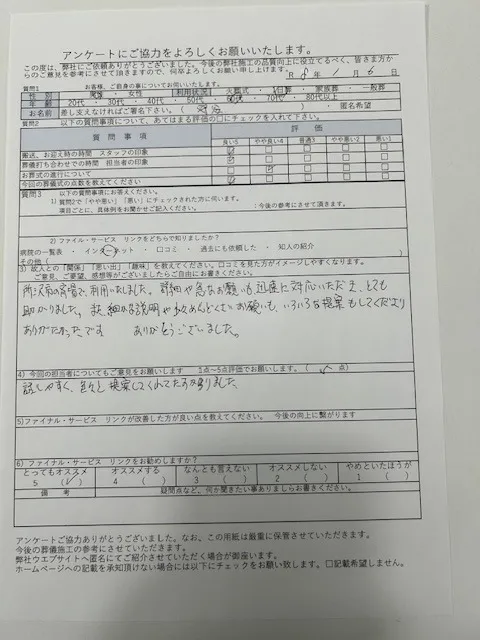 アンケートにご協力をよろしくお願いいたします。
この度は、弊社にご依頼ありがとうございました。今後の弊社施工の品質向上に役立てるべく、皆さま方か
らのご意見を参考にさせて頂きますので、何卒よろしくお願い申し上げます。 R 8 年 1 月 6 日
質問1 お客様、ご自身の事についてお伺いします。
性 別 男性 ・ 女性 利用状況 火葬式 ・ 1日葬 ・ 家族葬 ・ 一般葬
年 齢 20代 ・ 30代 ・ 40代 ・ 50代 ・ 60代 ・ 70代 ・ 80代以上
お名前 差し支えなければご署名下さい。( ) ・ 匿名希望
質問2 以下の質問事項について、あてはまる評価の□にチェックを入れて下さい。
質 問 事 項 評 価
良い5 やや良い4 普通3 やや悪い2 悪い1
搬送、お迎え時の時間 スタッフの印象
葬儀打ち合わせでの時間 担当者の印象
お葬式の進行について
今回の葬儀式の点数を教えてください
質問3 以下の質問事項にお答えください。
1) 質問2で「やや悪い」「悪い」にチェックされた方に伺います。
項目ごとに、具体例をお聞かせご記入ください。 :今後の参考にさせて頂きます。
2) ファイル・サービス リンクをどちらで知りましたか?
病院の一覧 ・ インターネット ・ 口コミ ・ 過去にも依頼した ・ 知人の紹介
その他 (
3) 故人との「関係」「思い出」「趣味」を教えてください。口コミを見た方がイメージしやすくなります。
ご意見、ご要望、感想等がございましたらご自由にお書きください。
所沢市の斎場で利用いたしました。 急なお願いも迅速に対応いただき、とても
助かりました。また細かな説明や めんどくさいお願いも、いろいろな提案もしてくださり
ありがたかったです。 ありがとうございました。
4) 今回の担当者についてもご意見をお願いします 1点~5点評価でお願いします。( 5 点)
話しやすく、色々と提案してくれてたすかりました。
5)ファイナル・サービス リンクが改善した方が良い点を教えてください。 今後の向上に繋がります
6) ファイナル・サービス リンクをお勧めしますか?
とってもオススメ オススメする なんとも言えない オススメしない やめといたほうが
5 (✓) 4 ( ) 3 ( ) 2 ( ) 1 ( )
備 考 疑問点など、何か聞きたい事ありましらお書きください。
アンケートご協力ありがとうございました。なお、この用紙は厳重に保管させていただきます。
今後の葬儀施工の参考にさせていただきます。
弊社ウエブサイトへ匿名にてご紹介させていただく場合が御座います。
ホームページへの記載を承知頂けない場合には以下にチェックをお願い致します。□記載希望しません。